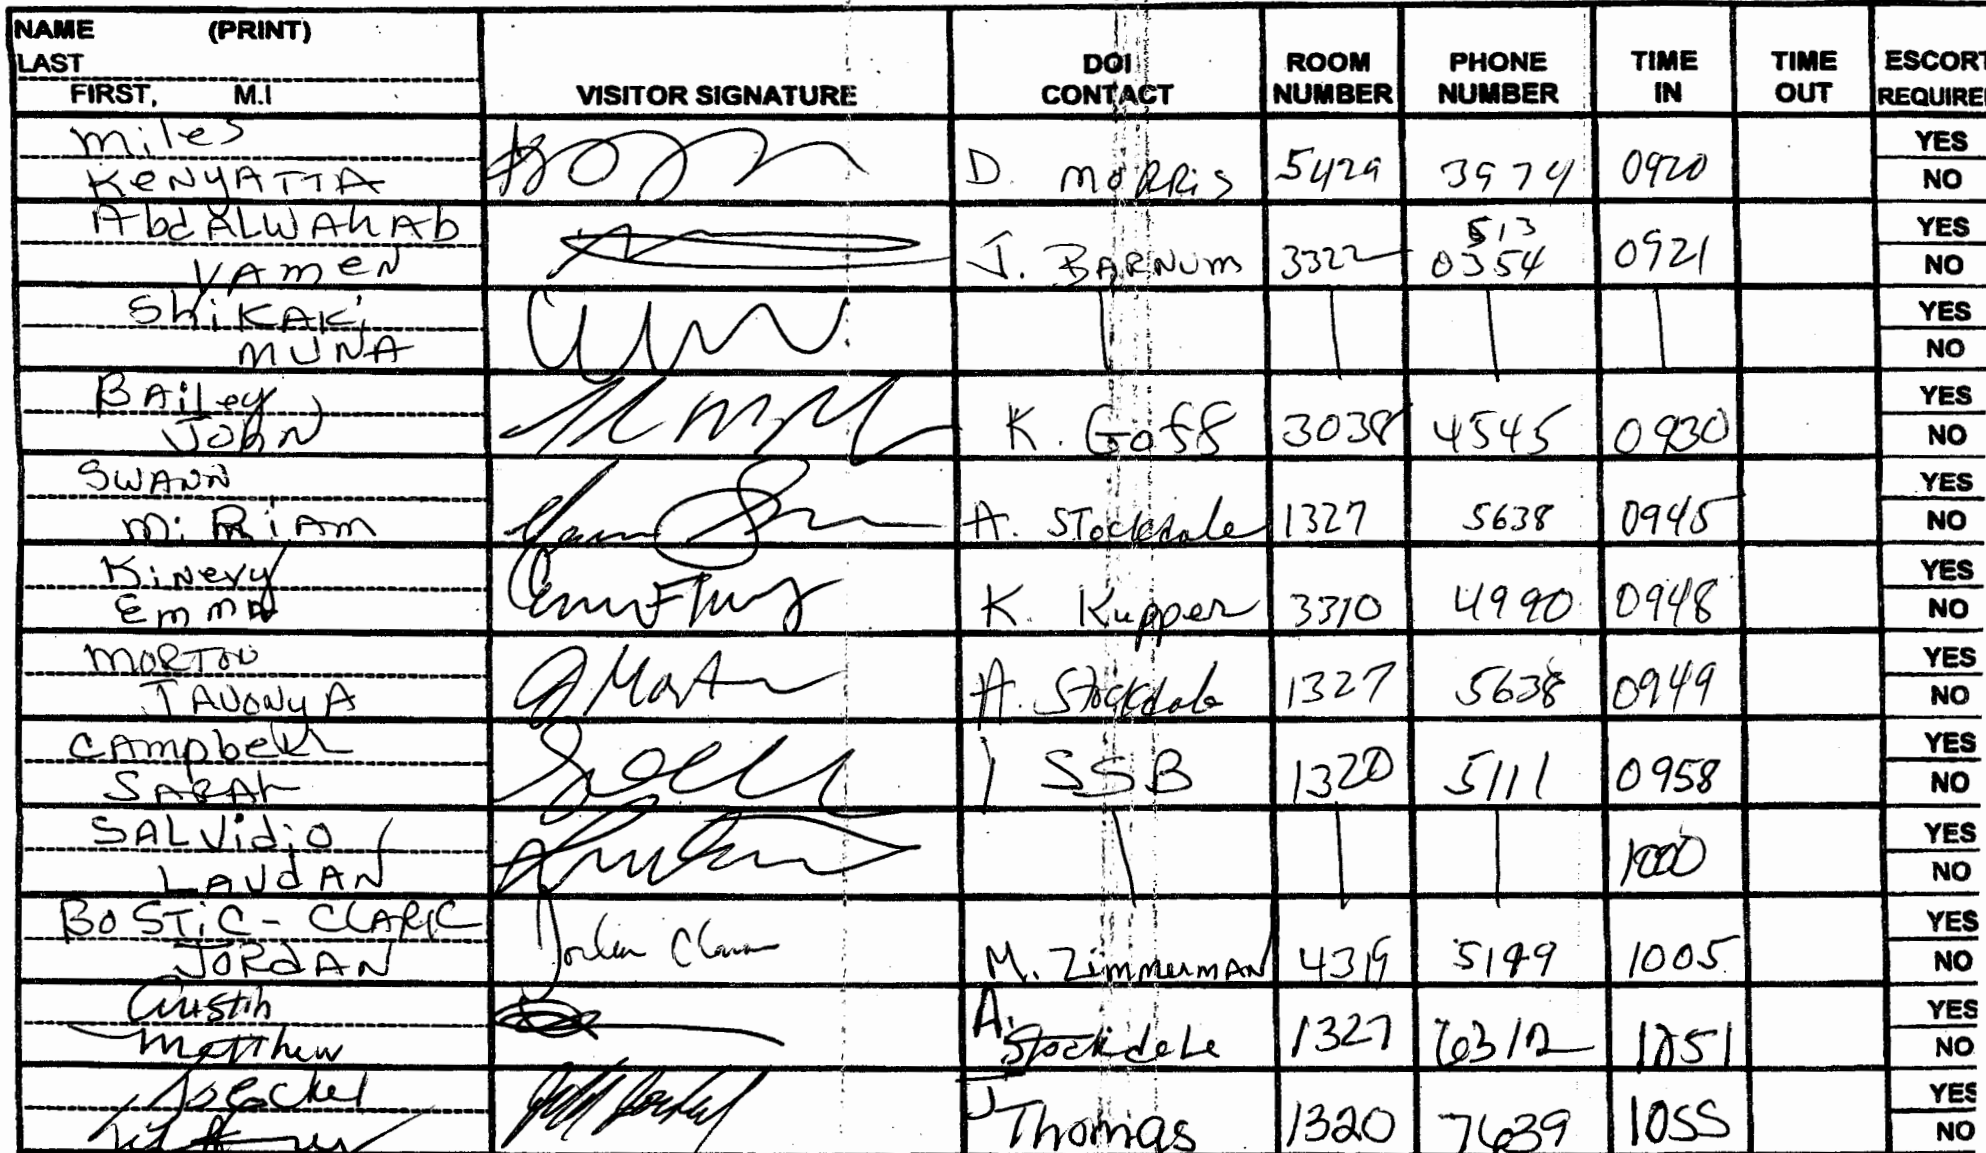 NAME (PRINT)
LAST
FIRST, M.I
VISITOR SIGNATURE
DOI
CONTACT
ROOM
NUMBER
PHONE
NUMBER
TIME
IN
TIME
OUT
ESCORT
REQUIRE
Miles
KENYATTA
D. MORRIS 5429 3974 0920
YES
NO
AbdALWAHAb
YAMEN
J. BARNUM 3322 513 0354 0921
YES
NO
ShiKAKi
MUNA
YES
NO
BAiLey
JOHN
K. Goff 3038 4545 0930
YES
NO
SWANN
MiRiAM
A. Stockdale 1327 5638 0945
YES
NO
KiNevy
EmmA
K. Kupper 3310 4990 0948
YES
NO
MORTON
TAVONyA
A. Stockdale 1327 5638 0949
YES
NO
CAmpbeLL
SARAH
SSB 1320 5111 0958
YES
NO
SALVidiO
LAUdAN
1000
YES
NO
BOSTiC - CLARK
JORdAN
Jordan Clark
M. Zimmerman 4319 5199 1005
YES
NO
Austin
Matthew
A. Stockdale 1327 1051
YES
NO
J Thomas 1320 7639 1055
YES
NO